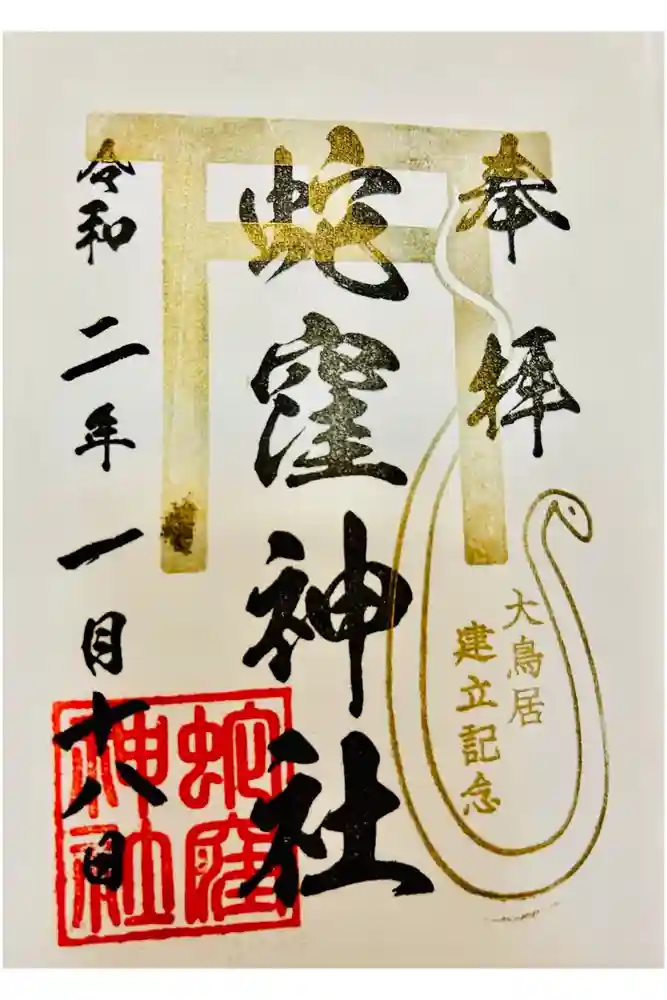 奉拝
大鳥居
建立記念
蛇窪神社
蛇窪
神社
令和二年一月十八日